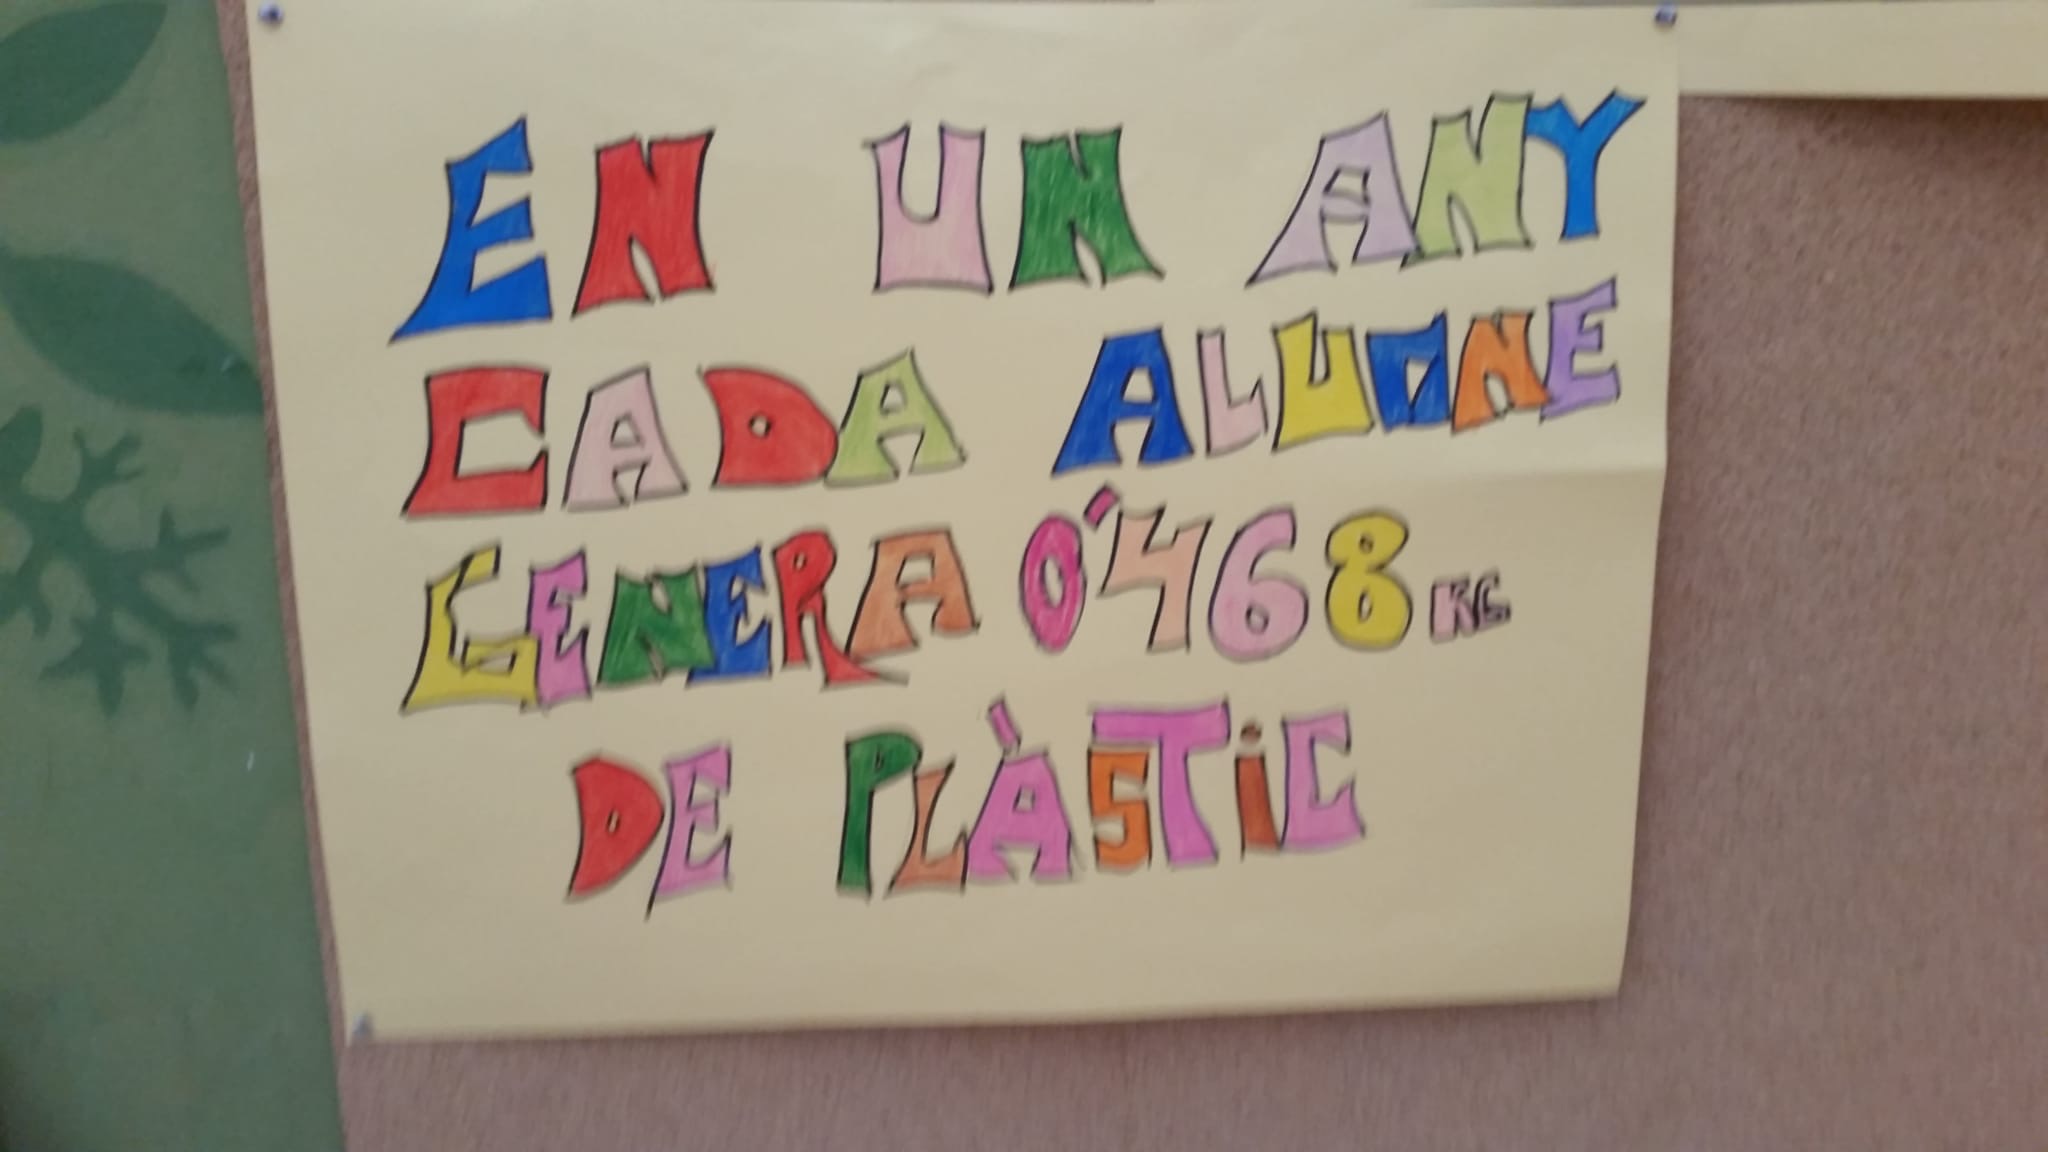 EN UN ANY
CADA ALUMNE
GENERA 0'468 KG
DE PLÀSTiC